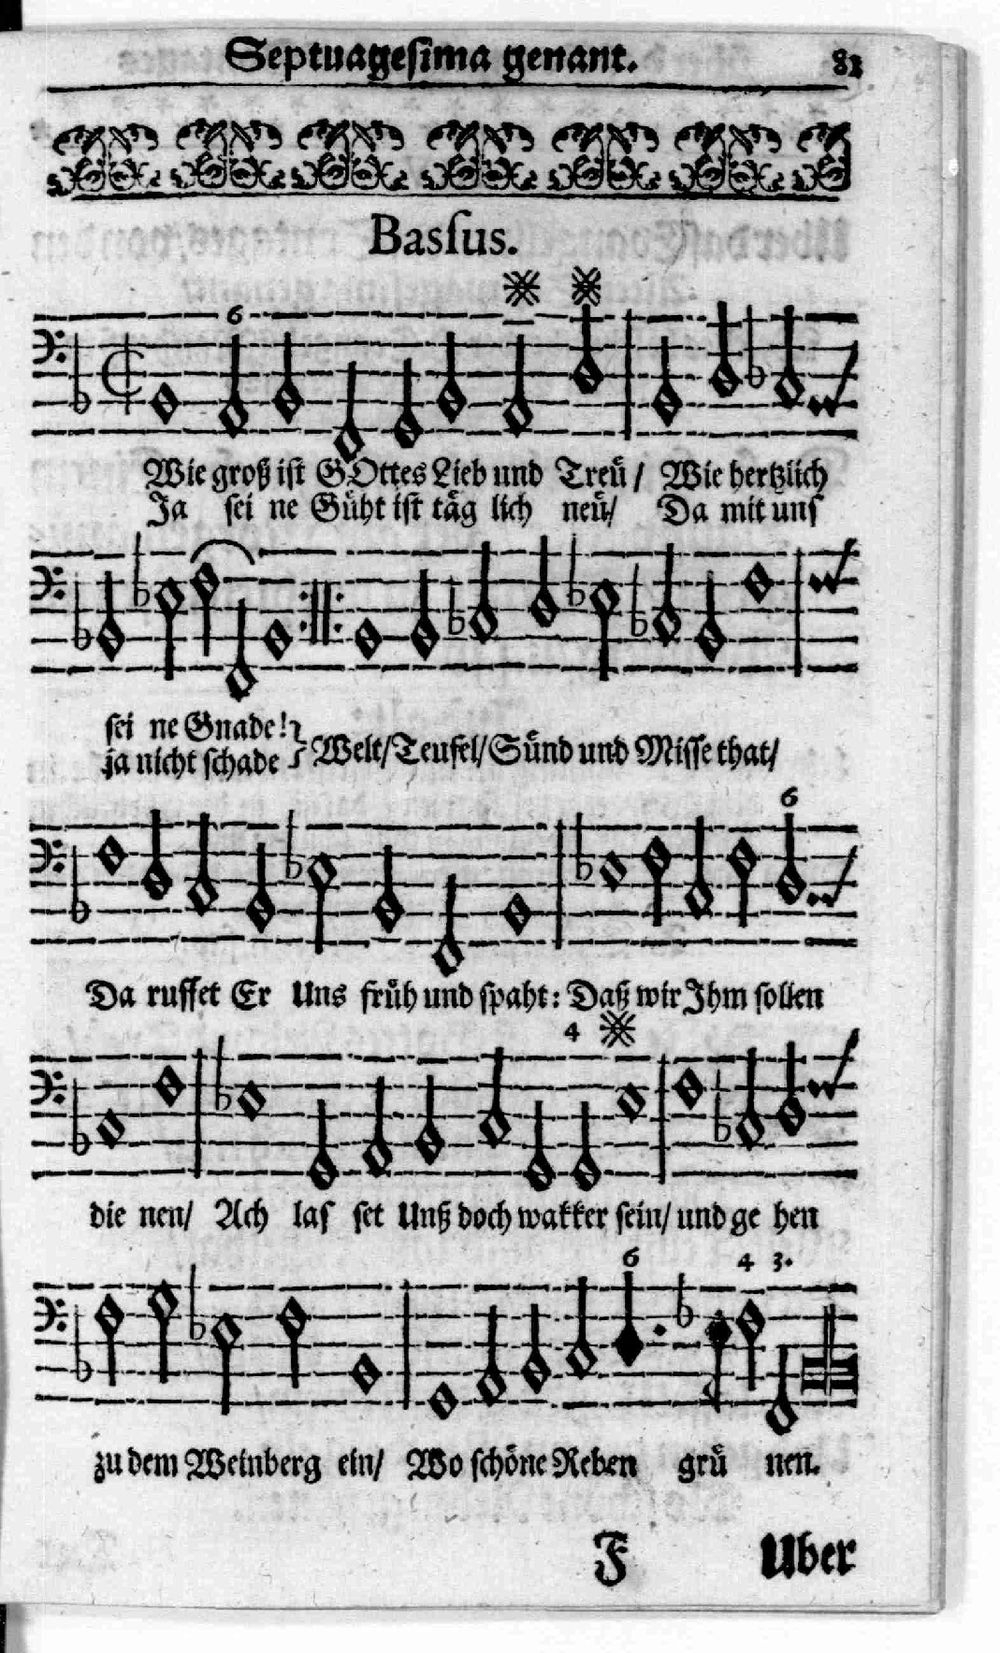 Septuagesima genant. 81
Bassus.
6
Wie groß ist GOttes Lieb und Treü / Wie hertzlich
Ja sei ne Güht ist täg lich neü/ Da mit uns
sei ne Gnade!
ja nicht schade } Welt/Teufel/Sünd und Misse that/
6
Da ruffet Er Uns früh und spaht: Daß wir Ihm sollen
4
die nen/ Ach las set Unß doch wakker sein/ und ge hen
6 4 3.
zu dem Weinberg ein/ Wo schöne Reben grü nen.
F Uber